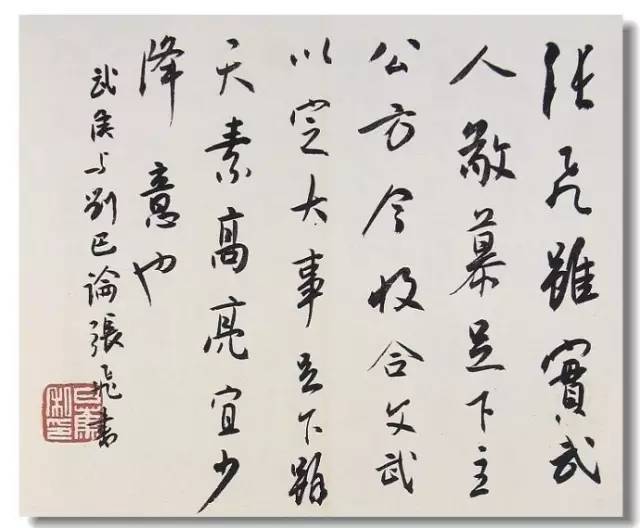 张飞雖實武
人敬慕足下主
公方今收合文武
以定大事足下雖
天素高亮宜少
降意也
武侯与劉巴論張飛書